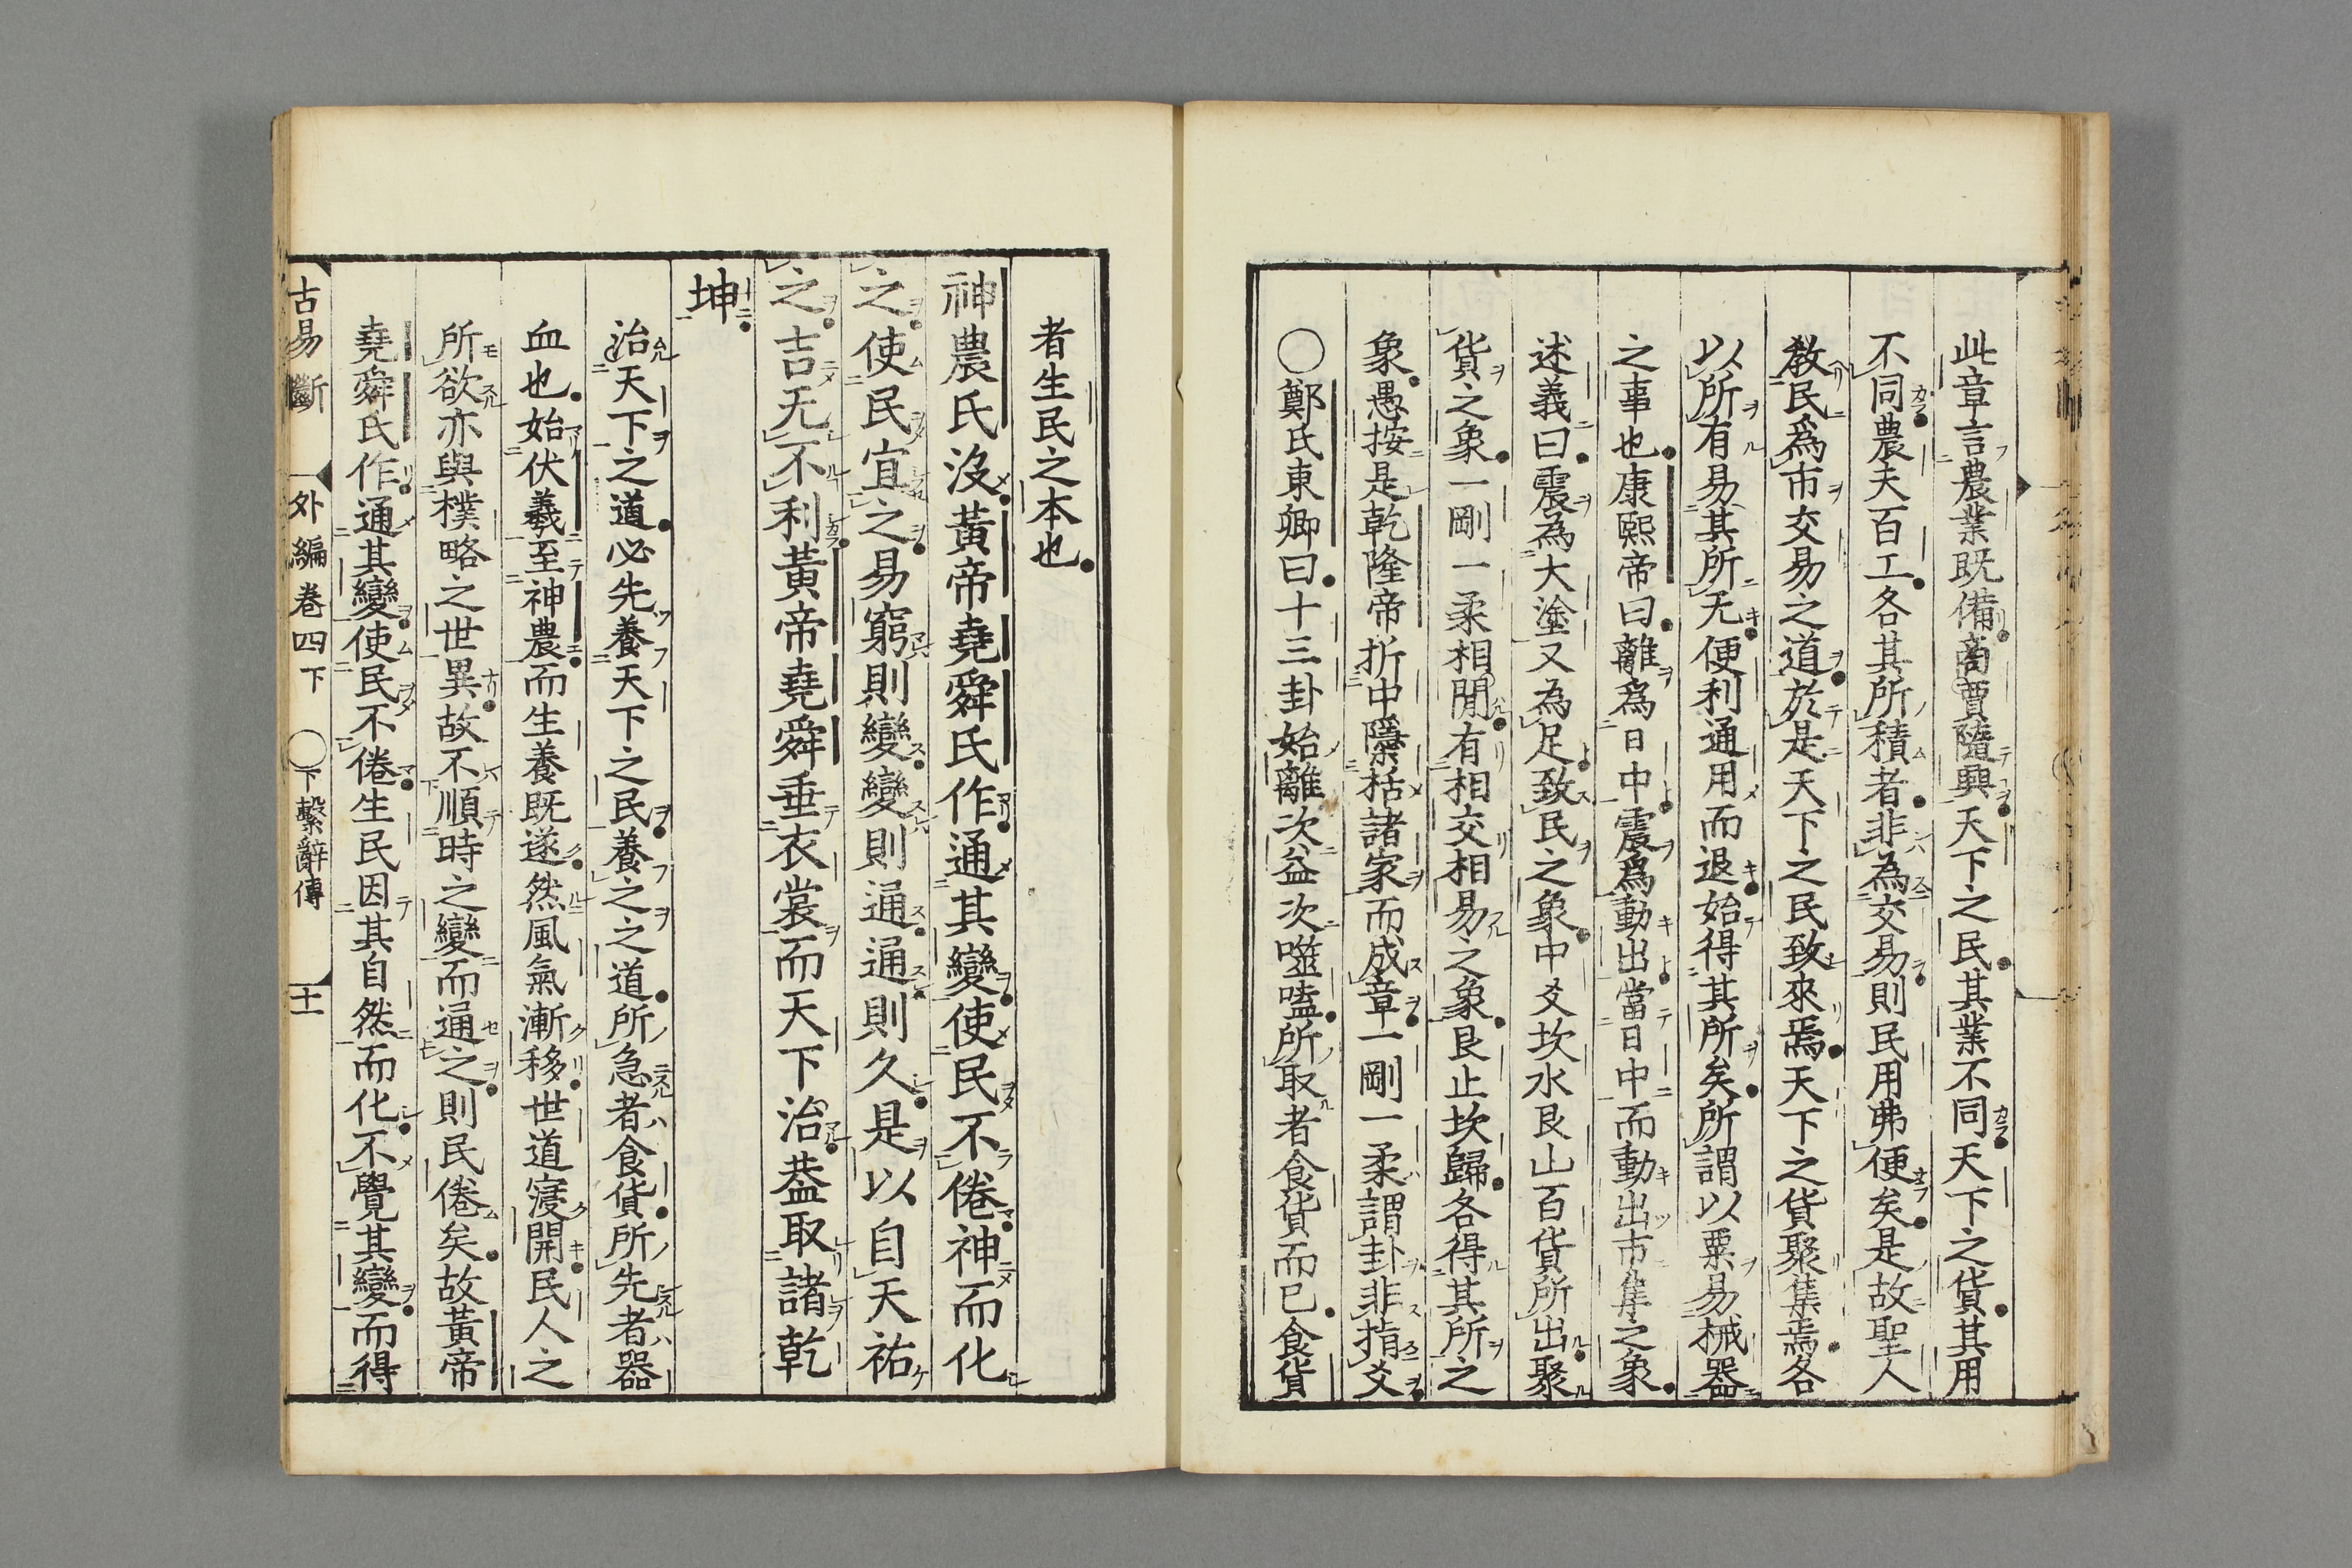 此章言農業既備商賈隨興天下之民其業不同天下之貨其用
不同農夫百工各其所積者非為交易則民用弗便矣是故聖人
教民爲市交易之道於是天下之民致來焉天下之貨聚集焉各
以所有易其所无便利通用而退始得其所矣所謂以粟易械器
之事也康熙帝曰離爲日中震爲動出當日中而動出市集之象
述義曰震為大塗又為足致民之象中爻坎水艮山百貨所出聚
貨之象一剛一柔相閒有相交相易之象艮止坎歸各得其所之
象愚按是乾隆帝折中隱括諸家而成章一剛一柔謂卦非指爻
〇鄭氏東卿曰十三卦始離次益次噬嗑所取者食貨而已食貨
者生民之本也
神農氏沒黃帝堯舜氏作通其變使民不倦神而化
之使民宜之易窮則變變則通通則久是以自天祐
之吉无不利黃帝堯舜垂衣裳而天下治葢取諸乾
坤
治天下之道必先養天下之民養之之道所急者食貨所先者器
血也始伏羲至神農而生養既遂然風氣漸移世道寖開民人之
所欲亦與樸略之世異故不順時之變而通之則民倦矣故黃帝
堯舜氏作通其變使民不倦生民因其自然而化不覺其變而得
古易斷 外編卷四下 〇下繫辭傳 十一